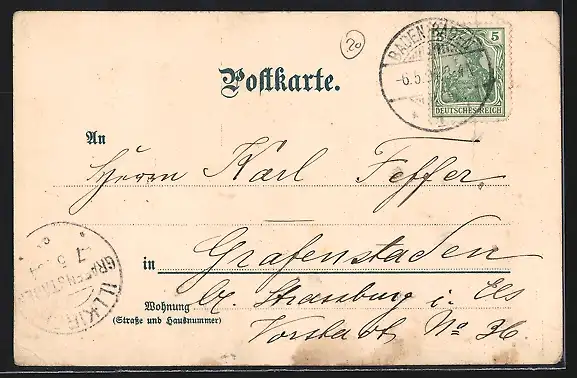 20
BADEN-BADEN
-6.5.
5
DEUTSCHES REICH
Postkarte.
An
Herrn Karl Feffer.
in Grafenstaden
bz Strassburg i. Els
Wohnung
(Straße und Hausnummer)
Vorstadt No 36
ILLKIRCH
GRAFENSTADEN
7 5 04